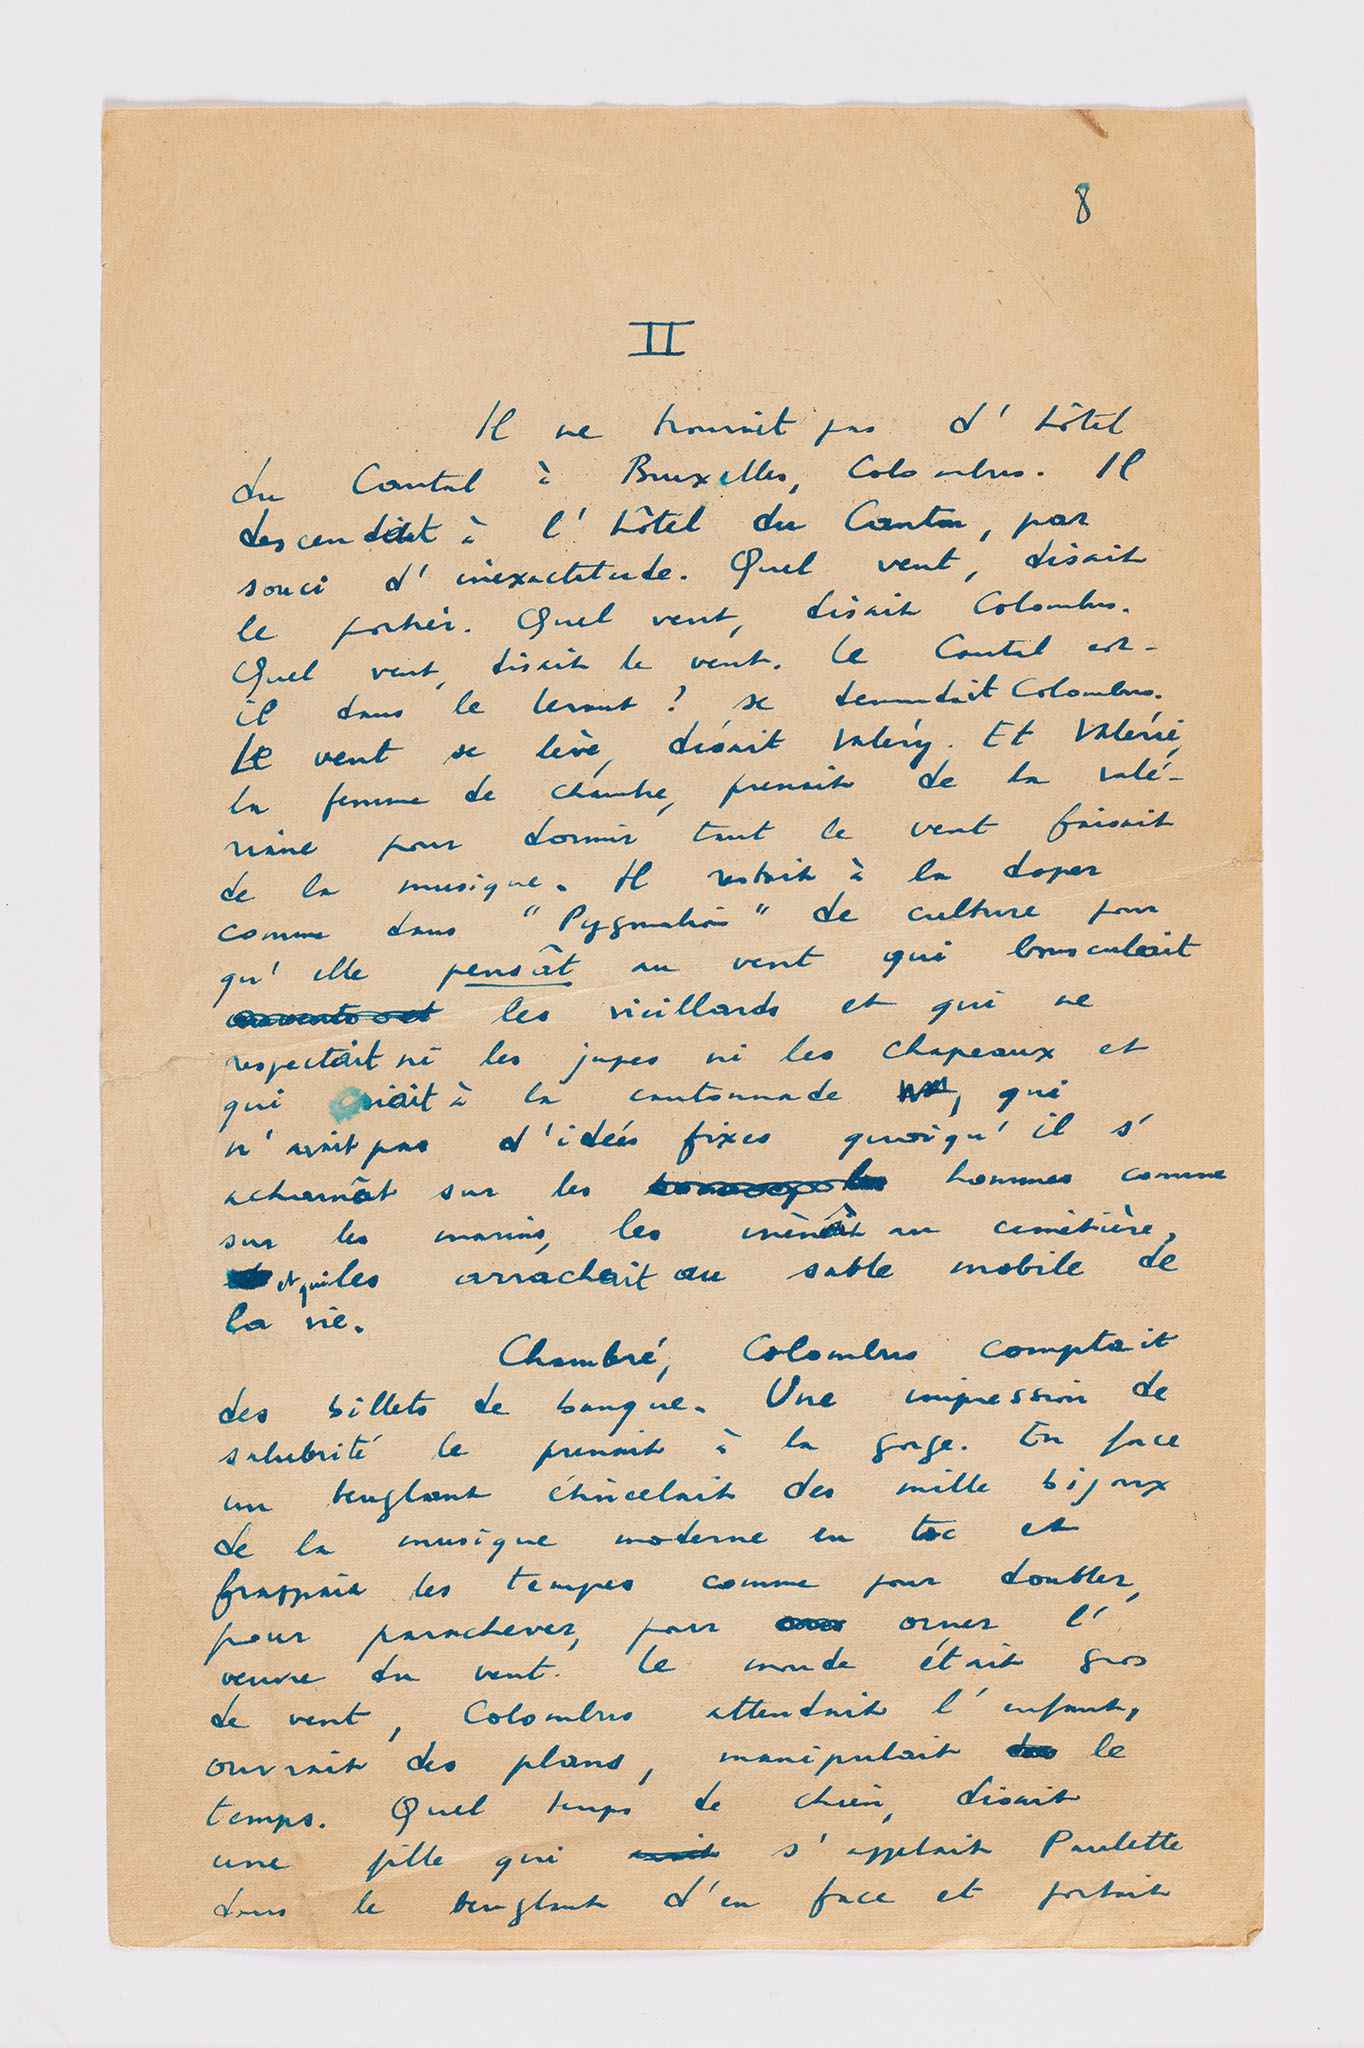 8
II
Il ne trouvait pas d'hôtel
du Cantal à Bruxelles, Colombus. Il
descendit à l'hôtel du Canton, par
souci d'inexactitude. Quel vent, disait
le portier. Quel vent, disait Colombus.
Quel vent, disait le vent. Le Cantal est-
il dans le levant ? se demandait Colombus.
Le vent se lève, disait Valéry. Et Valérie,
la femme de chambre, prenait de la valé-
riane pour dormir tant le vent faisait
de la musique. Il restait à la doper
comme dans "Pygmalion" de culture pour
qu'elle pensât au vent qui bousculait
les vieillards et qui ne
respectait ni les jupes ni les chapeaux et
qui criait à la cantonnade, qui
n'avait pas d'idées fixes quoiqu'il s'
acharnât sur les hommes comme
sur les marins, les menât au cimetière,
et qui les arrachait au sable mobile de
la vie.
Chambré, Colombus comptait
des billets de banque. Une impression de
salubrité le prenait à la gorge. En face
un beuglant étincelait des mille bijoux
de la musique moderne en toc et
frappait les tempes comme pour doubler,
pour parachever, pour orner l'
œuvre du vent. Le monde était gros
de vent, Colombus attendait l'enfant,
ouvrait des plans, manipulait le
temps. Quel temps de chien, disait
une fille qui s'appelait Paulette
dans le beuglant d'en face et portait